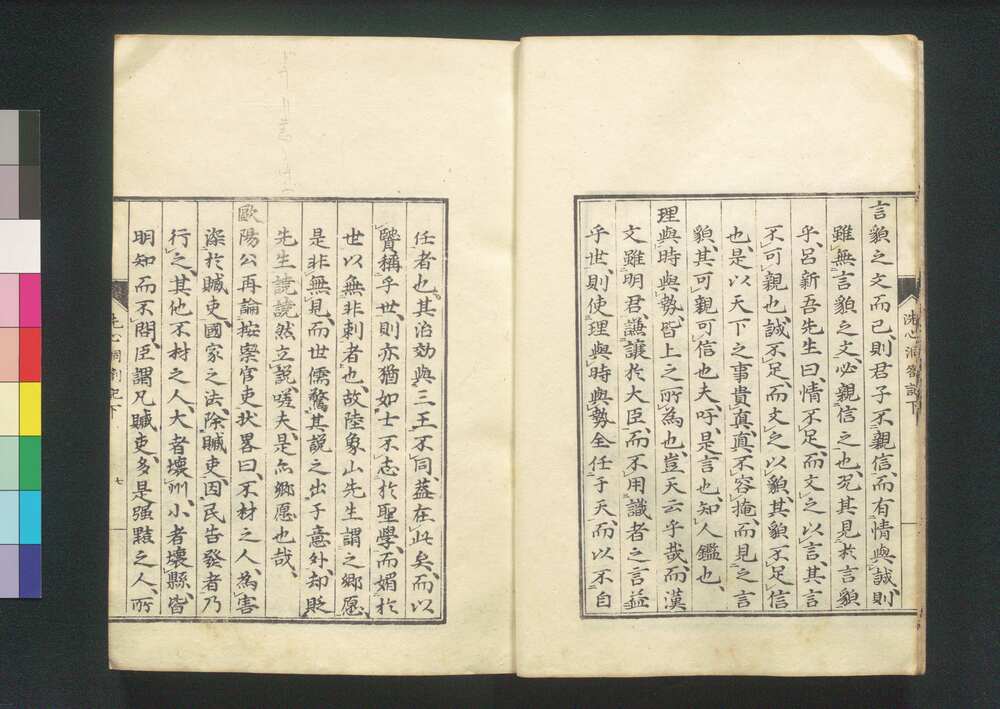 言貌之文而已、則君子不親信、而有情與誠、則
雖無言貌之文、必親信之也、況其見於言貌
乎、呂新吾先生曰、情不足、而文之以言、其言
不可親也、誠不足、而文之以貌、其貌不足信
也、是以天下之事貴真、真不容掩、而見之言
貌、其可親可信也夫、吁、是言也、知人鑑也、
理與時與勢、皆上之所為也、豈天云乎哉、而漢
文雖明君、謙讓於大臣、而不用識者之言、益
乎世、則使理與時與勢全任于天、而以不自
洗心洞劄記下
任者也、其治効與三王不同、蓋在此矣、而以
賢稱乎世、則亦猶如士不志於聖學、而媚於
世以無非刺者也、故陸象山先生謂之鄉愿、
是非無見、而世儒驚其說之出于意外、却貶
先生譊譊然立說、嗟夫是亦鄉愿也哉、
歐陽公再論按察官吏狀畧曰、不材之人、為害
深於贓吏、國家之法、除贓吏、因民告發者乃
行之、其他不材之人、大者壞州、小者壞縣、皆
明知而不問、臣謂凡贓吏、多是強黠之人、所
洗心洞劄記下
七